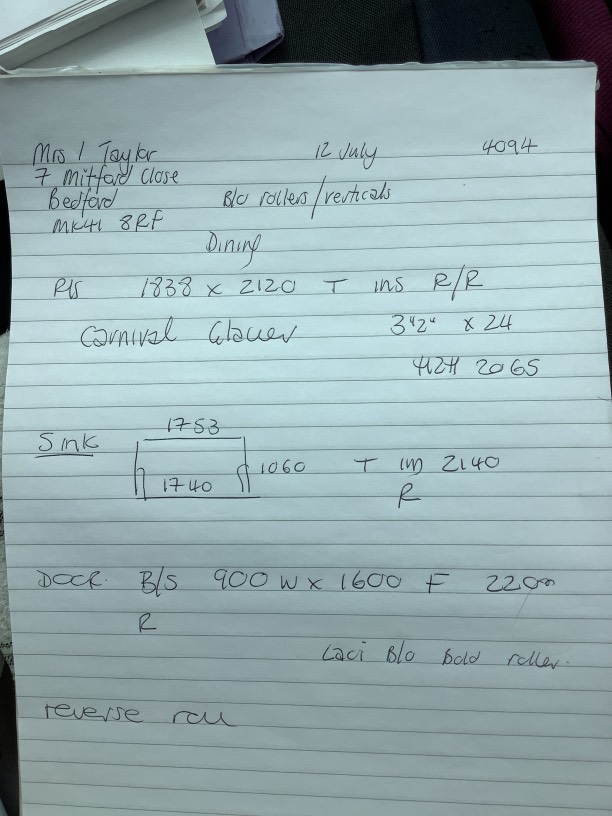 Mrs I Taylor 12 July 4094
7 Mitford Close
Bedford B/o rollers/verticals
MK41 8RF
Dining
P/S 1838 x 2120 T ins R/R
Carnival Glacier 3"2" x 24
2065
Sink 1753
1060 T 2140
1740
R
DOOR. B/S 900 W x 1600 F 220
R
Laci B/o roller.
reverse roll